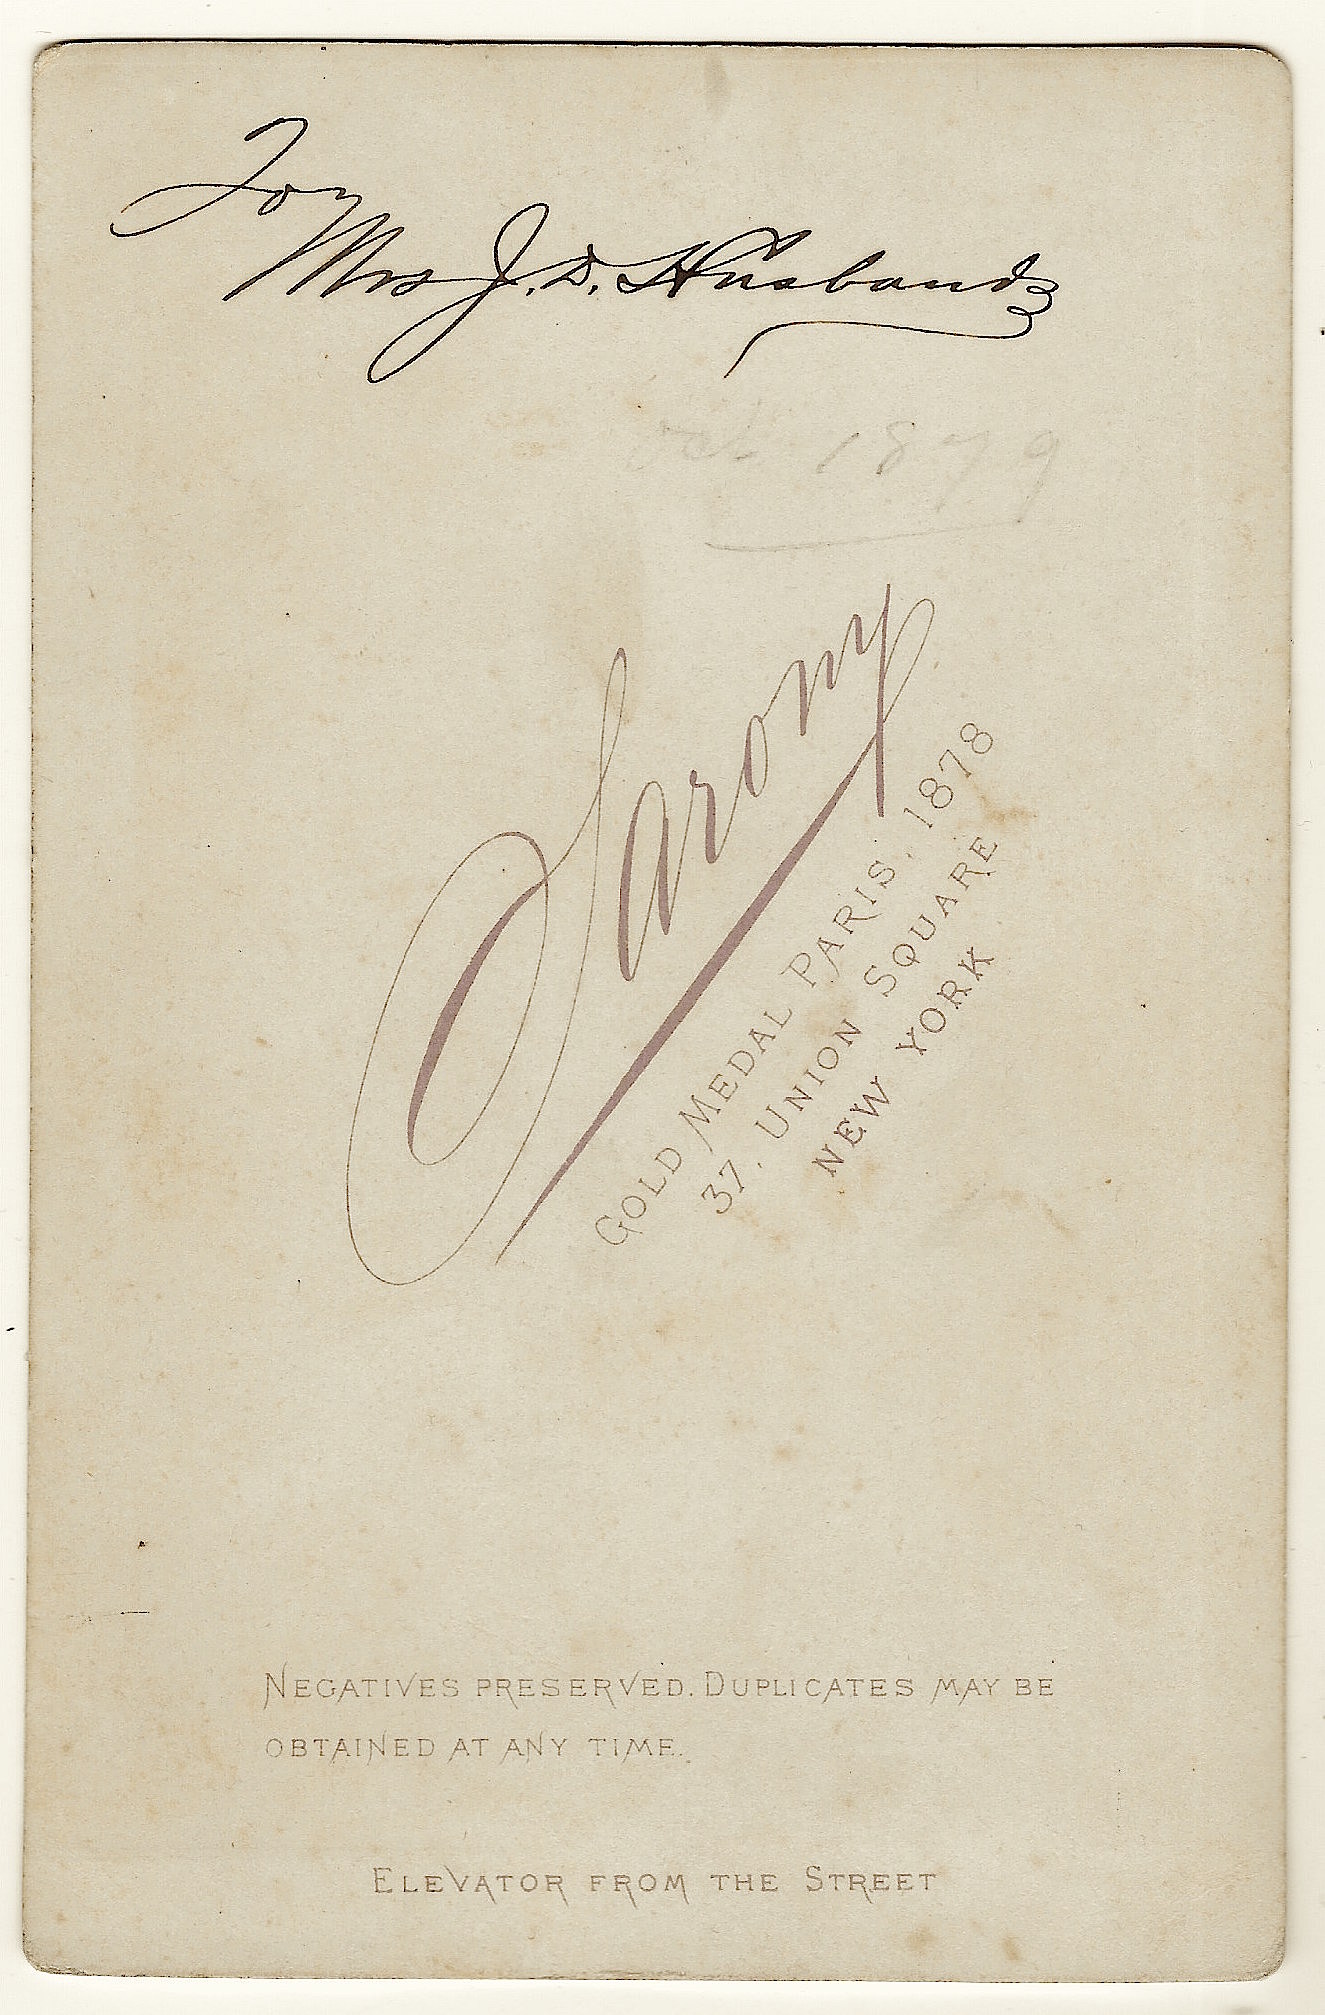 For
Mrs J. D. Husbands
Oct. 1879
Sarony
GOLD MEDAL PARIS, 1878
37. UNION SQUARE
NEW YORK
NEGATIVES PRESERVED. DUPLICATES MAY BE
OBTAINED AT ANY TIME.
ELEVATOR FROM THE STREET